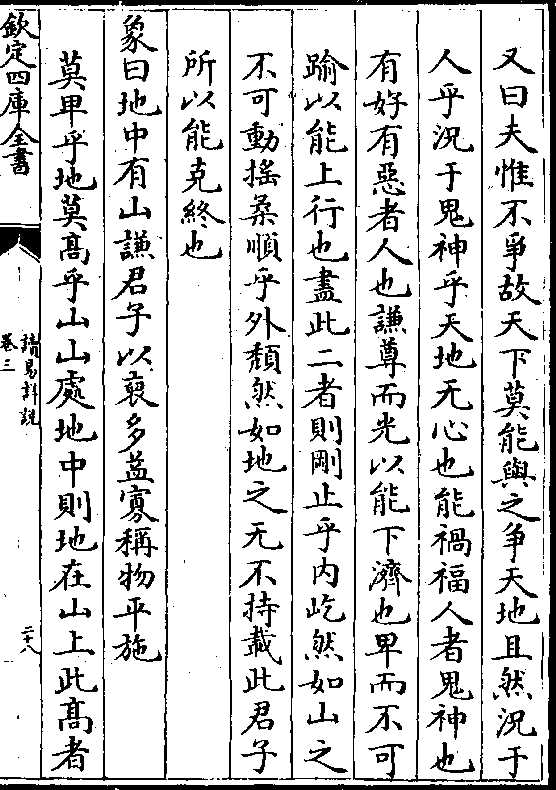 又曰夫惟不爭故天下莫能與之争天地且然況于
人乎況于鬼神乎天地无心也能禍福人者鬼神也
有好有惡者人也謙尊而光以能下濟也卑而不可
踰以能上行也盡此二者則剛止乎内屹然如山之
不可動揺柔順乎外頽然如地之无不持載此君子
所以能克終也
象曰地中有山謙君子以裒多益寡稱物平施
莫卑乎地莫髙乎山山處地中則地在山上此髙者
欽定四庫全書
讀易詳說
卷三
二十八